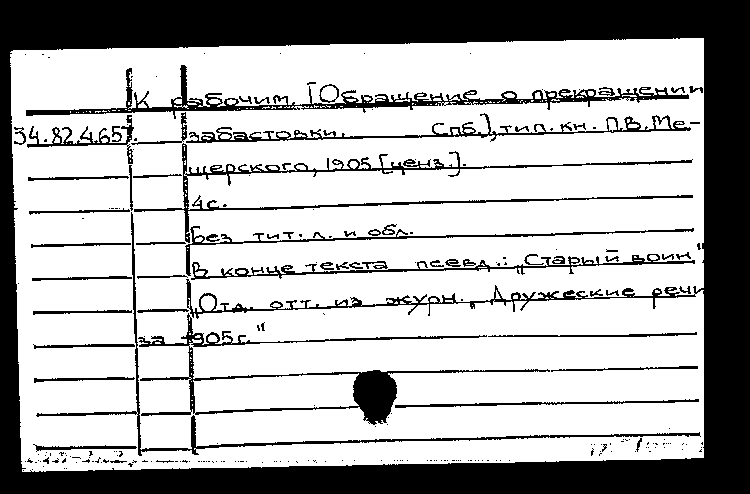 К рабочим. [Обращение о прекращении
34.82.4.657. забастовки. Спб.], тип. кн. П.В. Ме-
щерского, 1905 [ценз.].
4с.
Без тит. л. и обл.
В конце текста псевд.: „Старый воин".
„Отд. отт. из журн. „Дружеские речи
за 1905г."